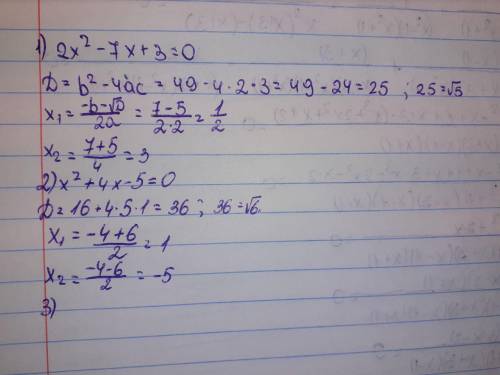 1) 2x² - 7x + 3 = 0
D = b² - 4ac = 49 - 4 · 2 · 3 = 49 - 24 = 25 ; 25 = √5
x₁ = (-b - √D)/2a = (7 - 5)/(2 · 2) = 1/2
x₂ = (7 + 5)/4 = 3
2) x² + 4x - 5 = 0
D = 16 + 4 · 5 · 1 = 36 ; 36 = √6.
x₁ = (-4 + 6)/2 = 1
x₂ = (-4 - 6)/2 = -5
3)